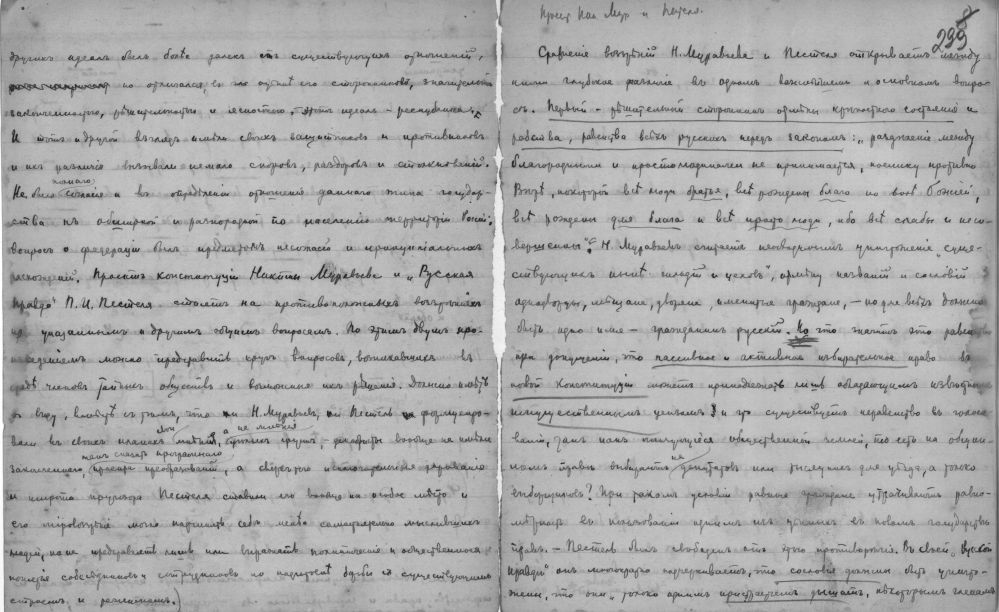 другихъ идеалъ былъ болѣе далекъ отъ существующихъ отношеній,
но отличался въ то же его сторонниковъ, значительной
законченностью, рѣшительностью и ясностью. Этотъ идеалъ – республика.
И тотъ и другой взглядъ имѣлъ своихъ защитниковъ и противниковъ
и ихъ различія вызывали немало споровъ, раздоровъ и столкновеній.
Не было согласія и въ опредѣленіи отношенія даннаго типа государ-
ства къ обширной и разнородной по населенію территоріи Россіи;
вопросъ о федераціи былъ предметомъ несогласій и принципіальныхъ
Проектъ конституціи Никиты Муравьева и „Русская
Правда" П. И. Пестеля стоятъ на противоположныхъ воззрѣніяхъ
по указаннымъ и другимъ общимъ вопросамъ. По этимъ двумъ про-
изведеніямъ можно представить кругъ вопросовъ, возникавшихъ въ
средѣ членовъ тайныхъ обществъ и возможныя ихъ рѣшенія. Должно имѣть
въ виду, вмѣстѣ съ тѣмъ, что ни Н. Муравьевъ, ни Пестель не формулиро-
вали въ своихъ планахъ мнѣній группъ – декабристы вообще не имѣли
законченнаго, проекта преобразованій, а свойства и исключительныя дарованія
и широта кругозора Пестеля ставили его вообще на особое мѣсто и
его міровоззрѣніе могло

людей, но не представлять лишь или выражать политическія и общественныя
понятія собесѣдниковъ и сотрудниковъ по борьбы съ существующимъ
строемъ и режимомъ.
Проект Ник. Мур. и Пестеля.
299
Сравненіе воззрѣній Н. Муравьева и Пестеля открываетъ между
ними глубокое различіе въ одномъ важнѣйшемъ и основномъ вопро-
сѣ. Первый – рѣшительный сторонникъ отмѣны крѣпостного состоянія и
рабства, равенства всѣхъ русскихъ передъ закономъ: „раздѣленіе между
благородными и простолюдинами не принимается, поелику противно
Вѣрѣ, по которой всѣ люди братья, всѣ рождены благо по волѣ Божіей,
всѣ рождены для блага и всѣ просто люди, ибо всѣ слабы и несо-
вершенны". Н. Муравьевъ считаетъ необходимымъ уничтоженіе „суще-
ствующихъ нынѣ гильдій и цеховъ", отмѣну названій и сословій
однодворцы, мѣщане, дворяне, именитые граждане, – но для всѣхъ должно
быть одно имя – гражданинъ русскій. Но что значитъ это равенство
при допущеніи, что пассивное и активное избирательное право въ
новой конституціи можетъ принадлежать лишь обладающимъ извѣстнымъ
имущественнымъ цензомъ и что существуетъ неравенство въ голосо-
ваніи, такъ какъ пользующіеся общественной землей, то есть на общин-
номъ правѣ выбираютъ не депутатовъ или тысяцкихъ для уѣзда, а только
выборщиковъ? При такомъ условіи равные граждане утрачиваютъ равно-
въ пользованіи однимъ изъ въ новомъ государствѣ
правъ. – Пестель былъ свободенъ отъ этого противорѣчія. Въ своей „Русской
Правдѣ" онъ многократно подчеркиваетъ, что сословія должны быть уничто-
жены, что они „только однимъ пристрастіемъ дышатъ, нѣкоторымъ членамъ